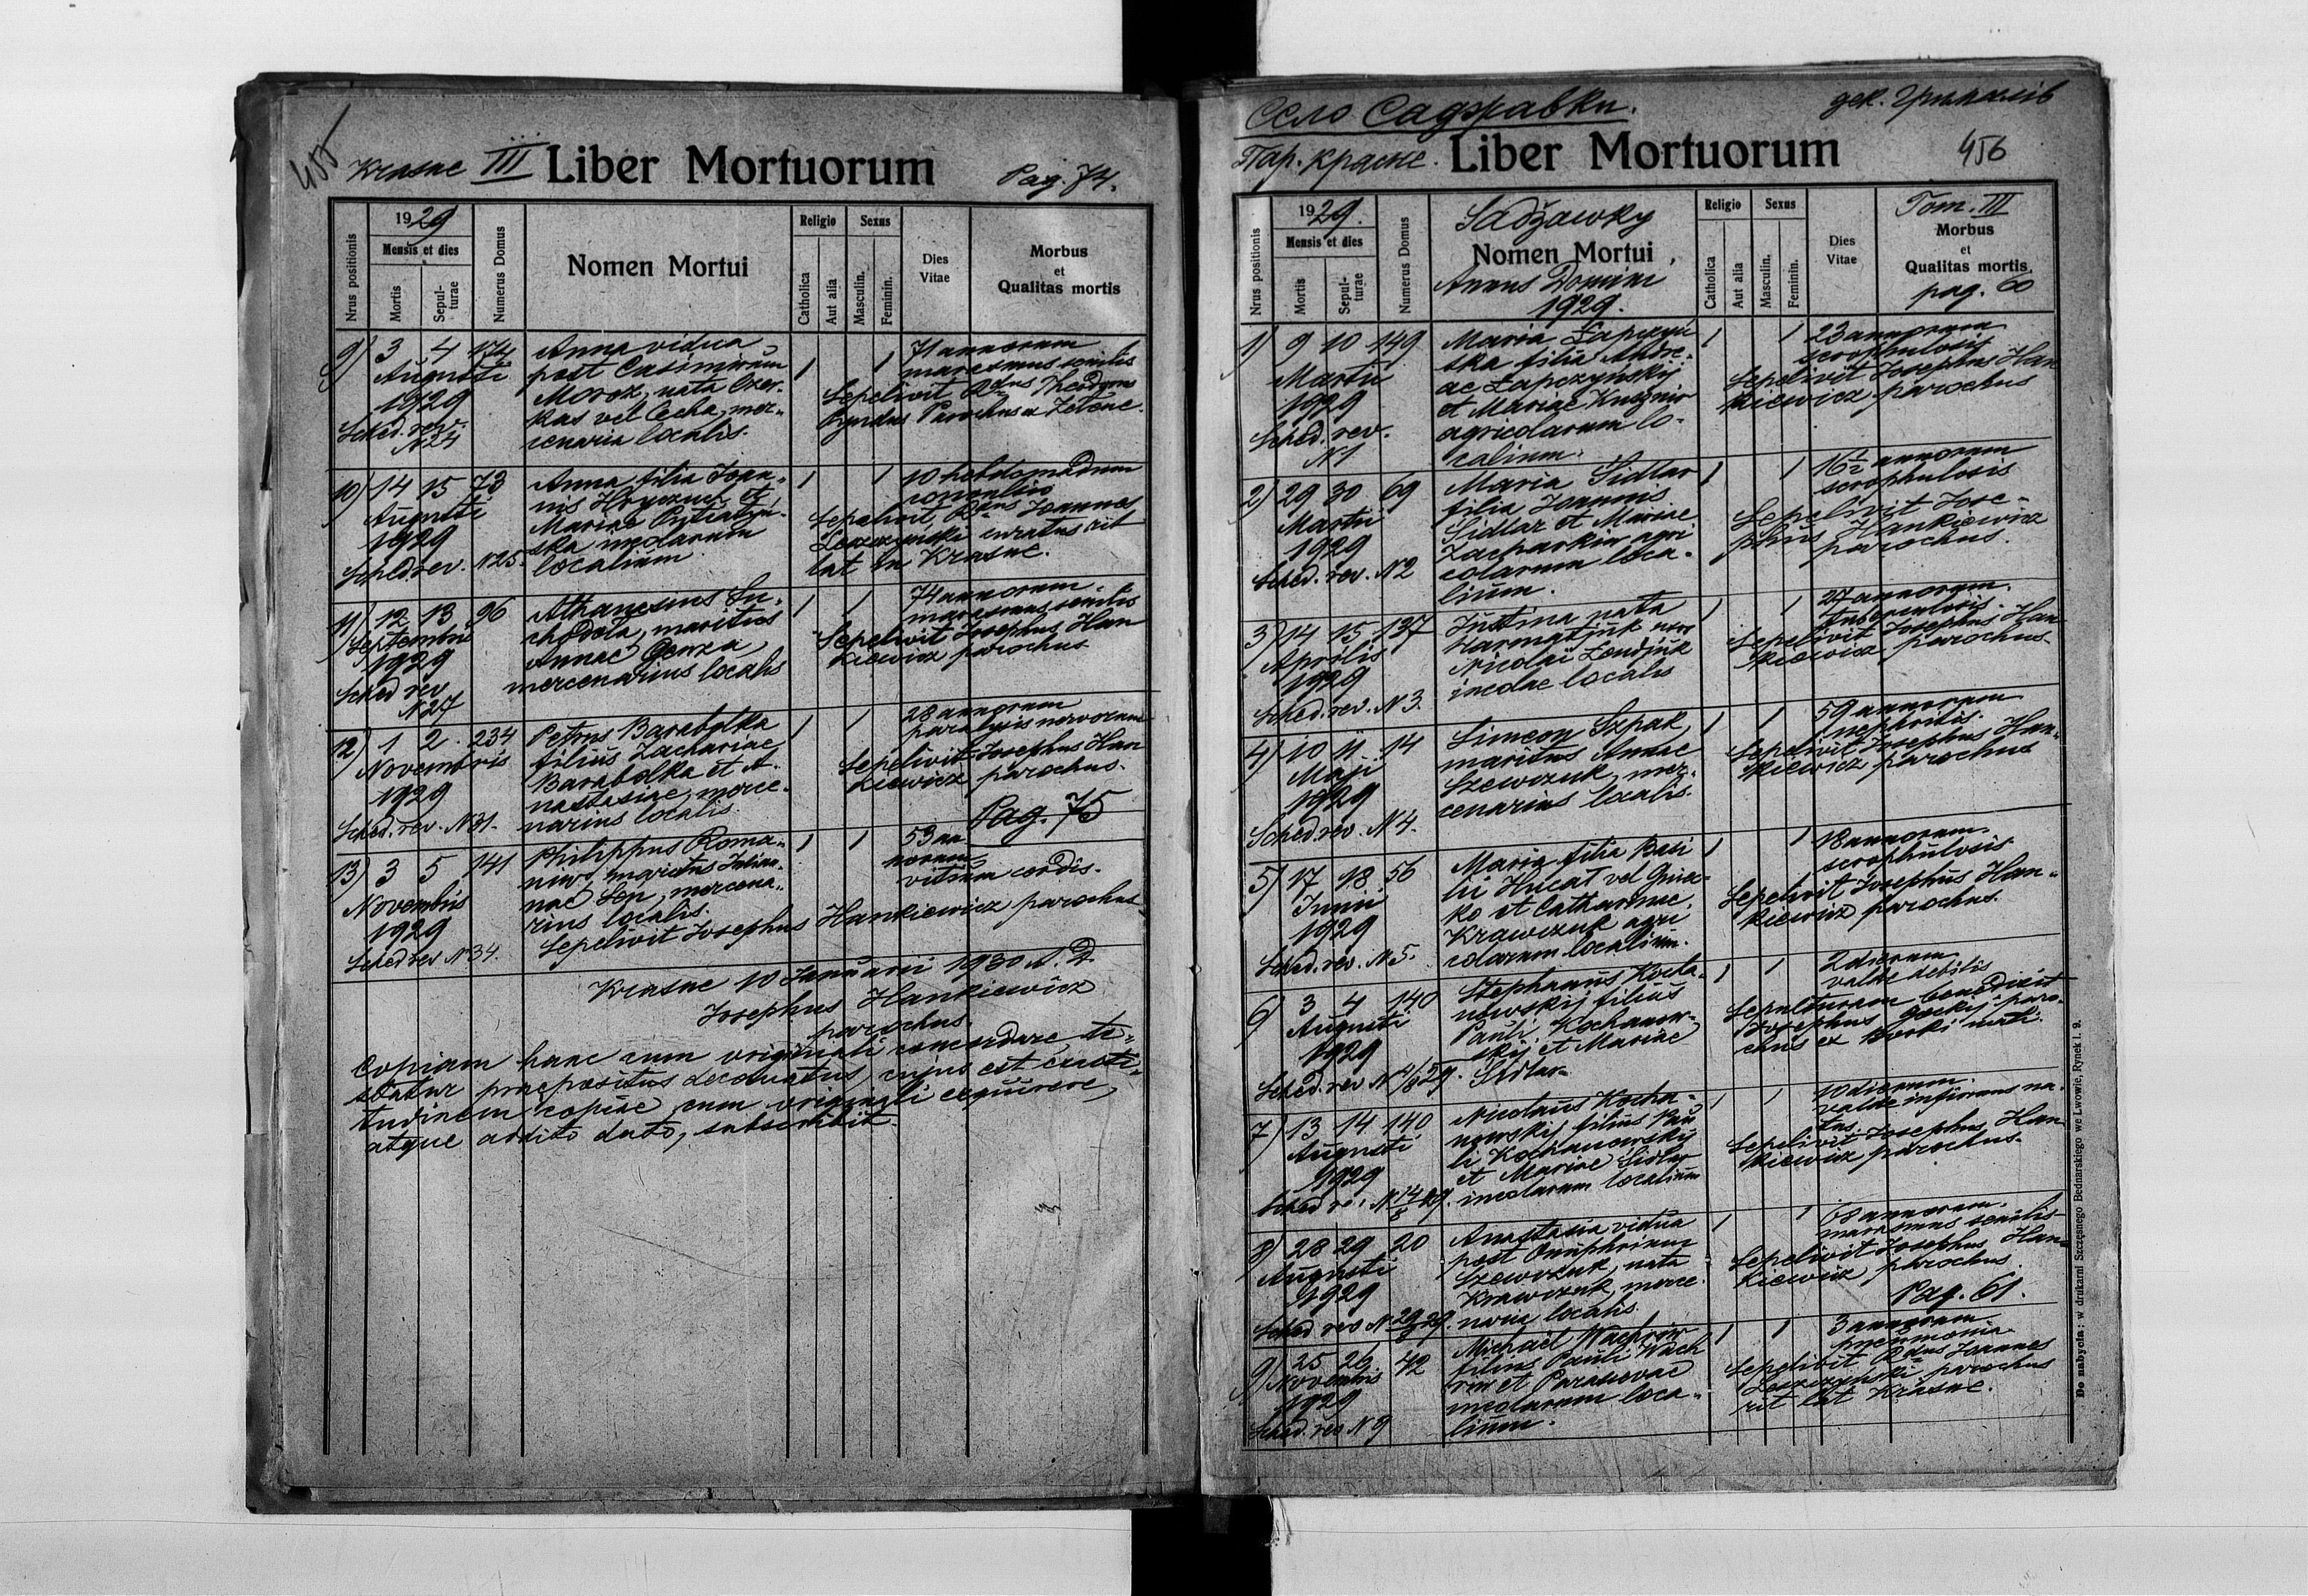 455
Krasne III Liber Mortuorum Pag. 74.
Nrus positionis
1929
Mensis et dies
Mortis
Sepul-turae
Numerus Domus
Nomen Mortui
Religio
Catholica
Aut alia
Sexus
Masculin.
Feminin.
Dies Vitae
Morbus
et
Qualitas mortis
9) 3 4 174
Augusti
1929
Sched. rev.
N 24
Anna vidua
post Casimirum
Moroz, nata
vel Cecha, mer-
cenaria localis.
1 1
71 annorum
marasmus senilis
Sepelivit
Parochus a Zelene.
10) 14 15 73
Augusti
1929
Sched rev. N 25.
Anna filia Joan-
nis et
Mariae
ska incolarum
localium
1 1
10 hebdomadum
Sepelivit Joannes
Leszczynski curatus rit
lat in Krasne.
11) 12 13 96
Septembris
1929
Sched rev
N 27
Athanasius Su-
chodola, maritus
Annae
mercenarius localis
1 1
74 annorum.
marasmus senilis
Sepelivit Josephus Han
kiewicz parochus
12) 1 2 234
Novembris
1929
Sched. rev. N 31.
Petrus Barabolka
filius Zachariae
Barabolka et A-
nastasiae, merce-
narius localis.
1 1
28 annorum
paralysis nervorum
Sepelivit Josephus Han
kiewicz parochus.
Pag. 75
13) 3 5 141
Novembris
1929
Sched rev N 34.
Philippus Roma-
niw, maritus Julian-
nae Sen, mercena-
rius localis.
1 1
53 an
norum
vitium cordis.
Sepelivit Josephus Hankiewicz parochus
Krasne 10 Januarii 1930 A. D.
Josephus Hankiewicz
parochus.
Copiam hanc cum originali concordare te-
statur praepositus decanatus, cujus est certi-
tudinem copiae cum originali
atque addito dato, subscribit.
Село Саджавки. дек. Грималів
Пар. Красне. Liber Mortuorum 456
Nrus positionis
1929.
Mensis et dies
Mortis
Sepul-turae
Numerus Domus
Sadżawky
Nomen Mortui
Annus Domini
1929.
Religio
Catholica
Aut alia
Sexus
Masculin.
Feminin.
Dies Vitae
Tom. III
Morbus
et
Qualitas mortis
pag. 60
1) 9 10 149
Martii
1929
Sched. rev.
N 1
Maria Łapczyń
ska filia Andre-
ae Łapczynskij
et Mariae Kusznir
agricolarum lo-
calium.
1 1
23 annorum
scrophulosis
Sepelivit Josephus Han
kiewicz parochus
2) 29 30 69
Martii
1929
Sched. rev. N 2
Maria Sidlar
filia Joannis
Sidlar et Mariae
Zacharkiw agri
colarum loca-
lium.
1 1
16½ annorum
scrophulosis
Sepelivit Jose-
phus Hankiewicz
parochus.
3) 14 15 137
Aprilis
1929
Sched. rev. N 3.
Justina nata
Karmatjuk uxor
Nicolai
incolae localis
1 1
27 annorum.
tuberculosis.
Sepelivit Josephus Han
kiewicz parochus.
4) 10 11 14
Maji
1929
Sched. rev. N 4.
Simeon Szpak
maritus Annae
Szewczuk, mer-
cenarius localis.
1 1
59 annorum
nephritis.
Sepelivit Josephus Han-
kiewicz parochus
5) 17 18 56
Junii
1929
Sched. rev. N 5.
Maria filia Basi
lii Hucat vel
ko et Catharinae
Krawczuk agri
colarum localium.
1 1
18 annorum.
scrophulosis
Sepelivit Josephus Han-
kiewicz parochus.
6) 3 4 140
Augusti
1929
Sched. rev N 4/8 29.
Stephanus Kocha-
nowskij filius
Pauli Kochanow-
skij et Mariae
Sidlar
1 1
2 dierum
valde debilis
Sepulturam benedixit
Josephus paro-
chus ex
7) 13 14 140
Augusti
1929
Sched re. N 14/8 29.
Nicolaus Kocha-
nowskij filius Pau
li Kochanowskij
et Mariae Sidlar
incolarum localium
1 1
10 dierum.
valde infirmus na-
tus.
Sepelivit Josephus Han-
kiewicz parochus.
8) 28 29 20
Augusti
1929
Sched rev N 29/8 29.
Anastasia vidua
post Onuphrium
Szewczuk, nata
Krawczuk, merce
naria localis.
1 1
68 annorum.
marasmus senilis
Sepelivit Josephus Han-
kiewicz parochus.
Pag. 61.
9) 25 26 42
Novembris
1929
Sched. rev N 9
Michael Wachriw
filius Pauli Wach
riw et Parascevae
incolarum loca-
lium.
1 1
3 annorum
pneumonia.
Sepelivit Rdus Joannes
Leszczynski parochus
rit lat Krasne.
Do nabycia: w drukarni Szczęsnego Bednarskiego we Lwowie, Rynek l. 9.